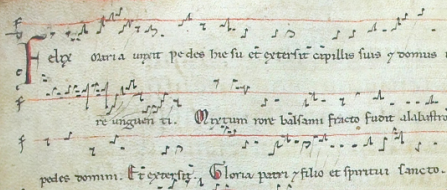 Felix maria unxit pedes hiesu et extersit capillis suis 7 domus
re unguenti. Mretum rore balsami fracto fudit alabastro
pedes domini. Et extersit. Gloria patri 7 filio et spiritui sancto.